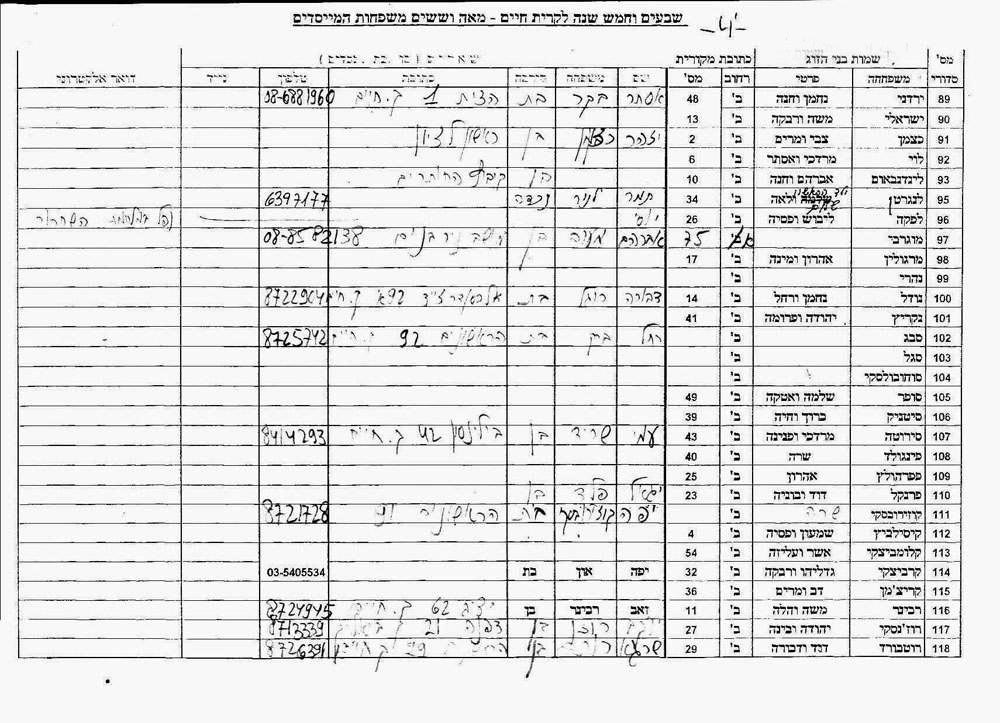 שבעים וחמש שנה לקרית חיים - מאה וששים משפחות המייסדים
מס' שמות בני הזוג כתובת מקורית
סדורי משפחתה פרטי רחוב מס' שם משפחה קירבה כתובת טלפון נייד דואר אלקטרוני
89 ירדני נחמן וחנה ב' 48 אסתר בקר בת הצית 1 ק. חיים 08-6881960
90 ישראלי משה ורבקה ב' 13
91 כצמן צבי ומרים ב' 2 יצהר כצמן בן ראשון לציון
92 לוי מרדכי ואסתר ב' 6
93 לינדנבאום אברהם וחנה ב' 10 בן קיבוץ החותרים
95 לנגרטן ולאה ב' 34 תמר לניר נכדה 6397177
96 לפקה ליבוש ופסיה ב' 26
97 מוגרבי 75 אברהם בן מושב ניר בנים 08-8582138
98 מרגולין אהרון ומינה ב' 17
99 נהרי ב'
100 נודל נחמן ורחל ב' 14 דבורה בת 8722904
101 נקריץ יהודה ופרומה ב' 41
102 סבג ב' רחל בת הראשונים 92 ק. חיים 8725742
103 סגל ב'
104 סוחובולסקי ב'
105 סופר שלמה ואטקה ב' 49
106 סיטניק ברוך וחיה ב' 39
107 סירוטה מרדכי ופנינה ב' 43 עמי שריד בן בילינסון 42 ק. חיים 8414293
108 פינגולד שרה ב' 40
109 פפרהולץ אהרון ב' 25
110 פרנקל דוד ובוניה ב' 23 יגאל פלד בן
111 קוזירובסקי שרה ב' יפה בת 8721728
112 קיסילביץ שמעון ופסיה ב' 4
113 קלומביצקי אשר ועליזה ב' 54
114 קרביצקי גדליהו ורבקה ב' 32 יפה און בת 03-5405534
115 קריצ'מן דב ומרים ב' 36
116 רבינר משה והלה ב' 11 זאב רבינר בן יציג 62 ק. חיים 8724945
117 רוז'נסקי יהודה ובינה ב' 27 רוזן בן דפנה 21 8713339
118 רוטבורד דוד ודבורה ב' 29 שרגא בן 29 ק. חיים 8726391